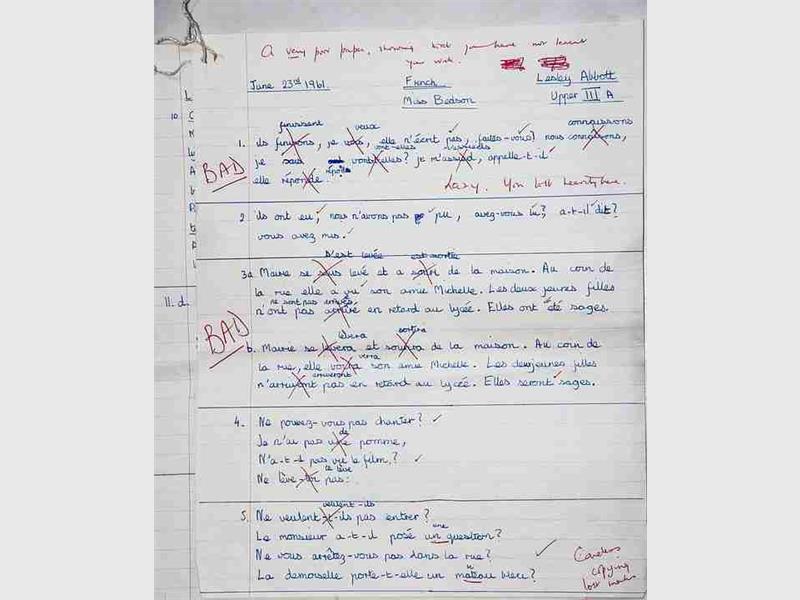 A very poor paper, showing that you have not learnt
your work.
June 23rd 1961. French Lesley Abbott
Miss Bedson Upper III A
10.
finissent veux connaissons
1. ils , je , elle n'écrit pas, faites-vous? nous ,
vont-elles
je vont-elles? je m' , appelle-t-il
BAD
répond
elle réponde.
Lazy. You lost here.
2. ils ont eu, nous n'avons pas pu, avez-vous lu? a-t-il dit?
vous avez mis.
s'est levée est sortie
3a Marie se levé et a de la maison. Au coin de
la rue elle a vu son amie Michelle. Les deux jeunes filles
ne sont pas arrivées
11. d.
n'ont pas arrivé en retard au lycée. Elles ont été sages.
BAD
lèvera sortira
b. Marie se levera et de la maison. Au coin de
verra
la rue, elle son amie Michelle. Les deux jeunes filles
arriveront
n' pas en retard au lycée. Elles seront sages.
4. Ne pouvez-vous pas chanter?
de
Je n'ai pas une pomme,
N'a-t-il pas vu le film?
Ne lève- pas.
veulent-ils
5. Ne veulent-t-ils pas entrer?
une
Le monsieur a-t-il posé un question?
Ne vous arrêtez-vous pas dans la rue?
La demoiselle porte-t-elle un mateau bleu?
Careless
copying
lost marks